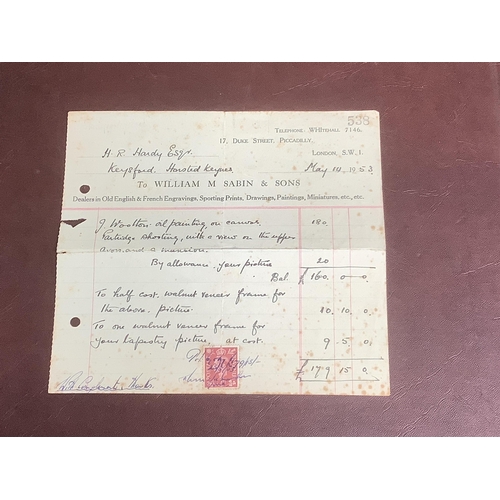 538
TELEPHONE: WHITEHALL 7146.
17, DUKE STREET, PICCADILLY,
H. R. Hardy Esqr.
LONDON, S.W.1.
Keysford. Horsted Keynes
May 14, 1953
To WILLIAM M SABIN & SONS
Dealers in Old English & French Engravings, Sporting Prints, Drawings, Paintings, Miniatures, etc., etc.
J Wootton. oil painting on canvas 180
Partridge shooting, with a view on the upper
avon and a mansion.
By allowance. your picture 20
Bal. £ 160. 0 0.
To half cost. walnut veneer frame for
the above. picture. 10. 0.
To one walnut veneer frame for
your tapestry picture, at cost. 9 5 0.
£ 179 15 0.